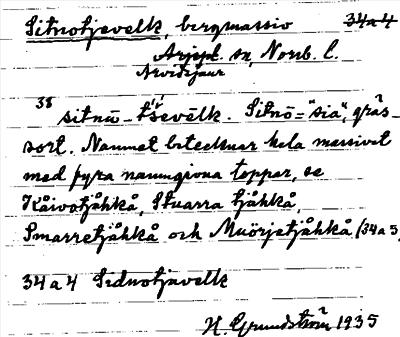 Sitnotjevelk, bergmassiv 34a4
Arjepl. sn, Norrb. l.
Arvidsjaur
38 sitnū - tševēlk. Sitnō = "sia", gräs-
sort. Namnet betecknar hela massivet
med fyra namngivna toppar, se
Kåivotjåhkå, Stuarra tjåhkå,
Smarretjåhkå och Muörjetjåhkå (34a3,
34 a 4 Sidnotjavelk
H. Grundström 1935